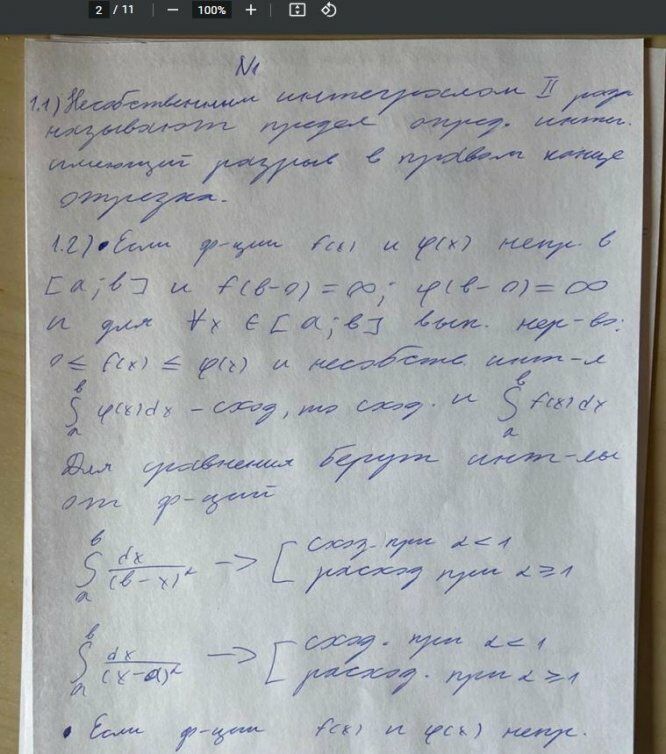 2 / 11 — 100% +
N1
1.1) Несобственным интегралом II рода
называют предел опред. интегр.
имеющий разрыв в правом конце
отрезка.
1.2) • Если ф-ции f(x) и φ(x) непр. в
[a;b] и f(b-0)=∞; φ(b-0)=∞
и для ∀x ∈ [a;b] вып. нер-во:
0 ≤ f(x) ≤ φ(x) и несобств. инт-л
∫ₐᵇ φ(x)dx - сход, то сход. и ∫ₐᵇ f(x)dx
Для сравнения берут инт-лы
от ф-ций
∫ₐᵇ dx/(b-x)^α —> [ сход. при α<1
расход при α≥1
∫ₐᵇ dx/(x-a)^α —> [ сход. при α<1
расход. при α≥1
• Если ф-ции f(x) и φ(x) непр.